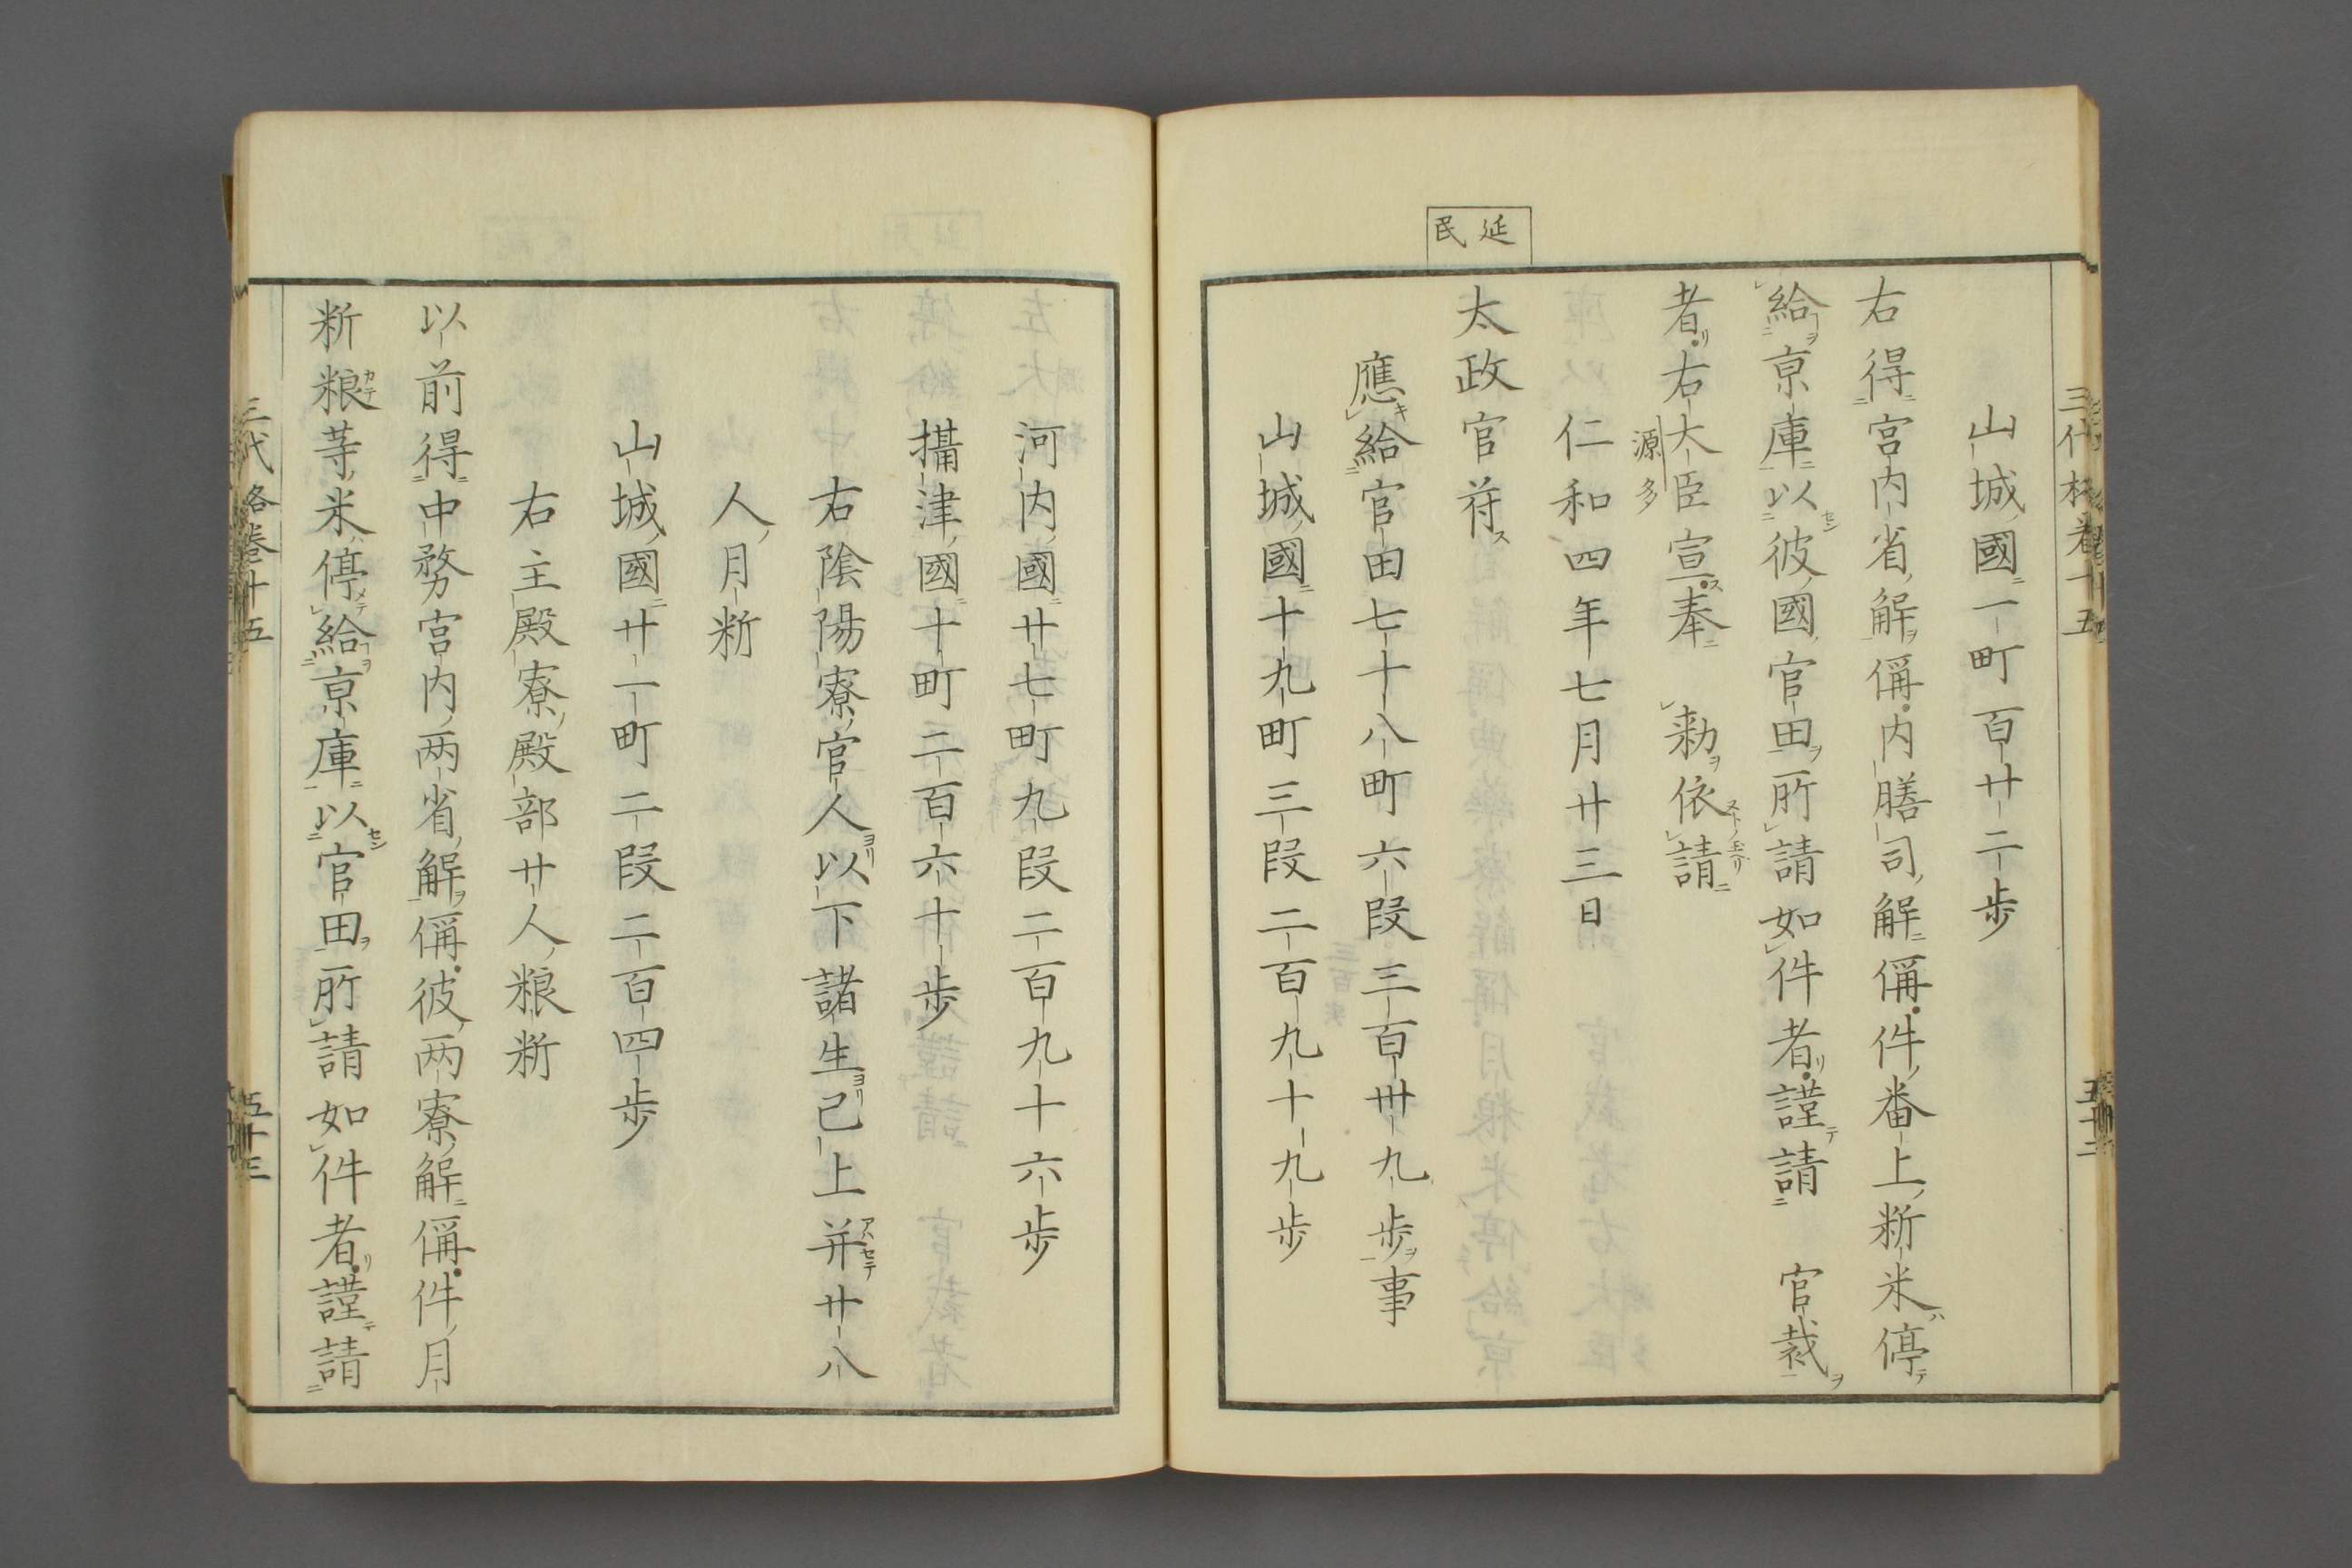 延民
山城國一町百廿二歩
右得宮内省解偁内膳司解偁件番上斫米停
給京庫以彼國官田所請如件者謹請　官裁
者右大臣宣奉　勅依請
源多
仁和四年七月廿三日
太政官符
應給官田七十八町六段三百卅九歩事
山城國十九町三段二百九十九歩
河内國廿七町九段二百九十六歩
攝津國十町二百六十歩
右陰陽寮官人以下諸生已上并廿八
人月斫
山城國廿一町二段二百四歩
右主殿寮殿部廿人粮斫
以前得中務宮内两省解偁彼两寮解偁件月
斫粮等米停給京庫以官田所請如件者謹請
三代格卷十五
五十三